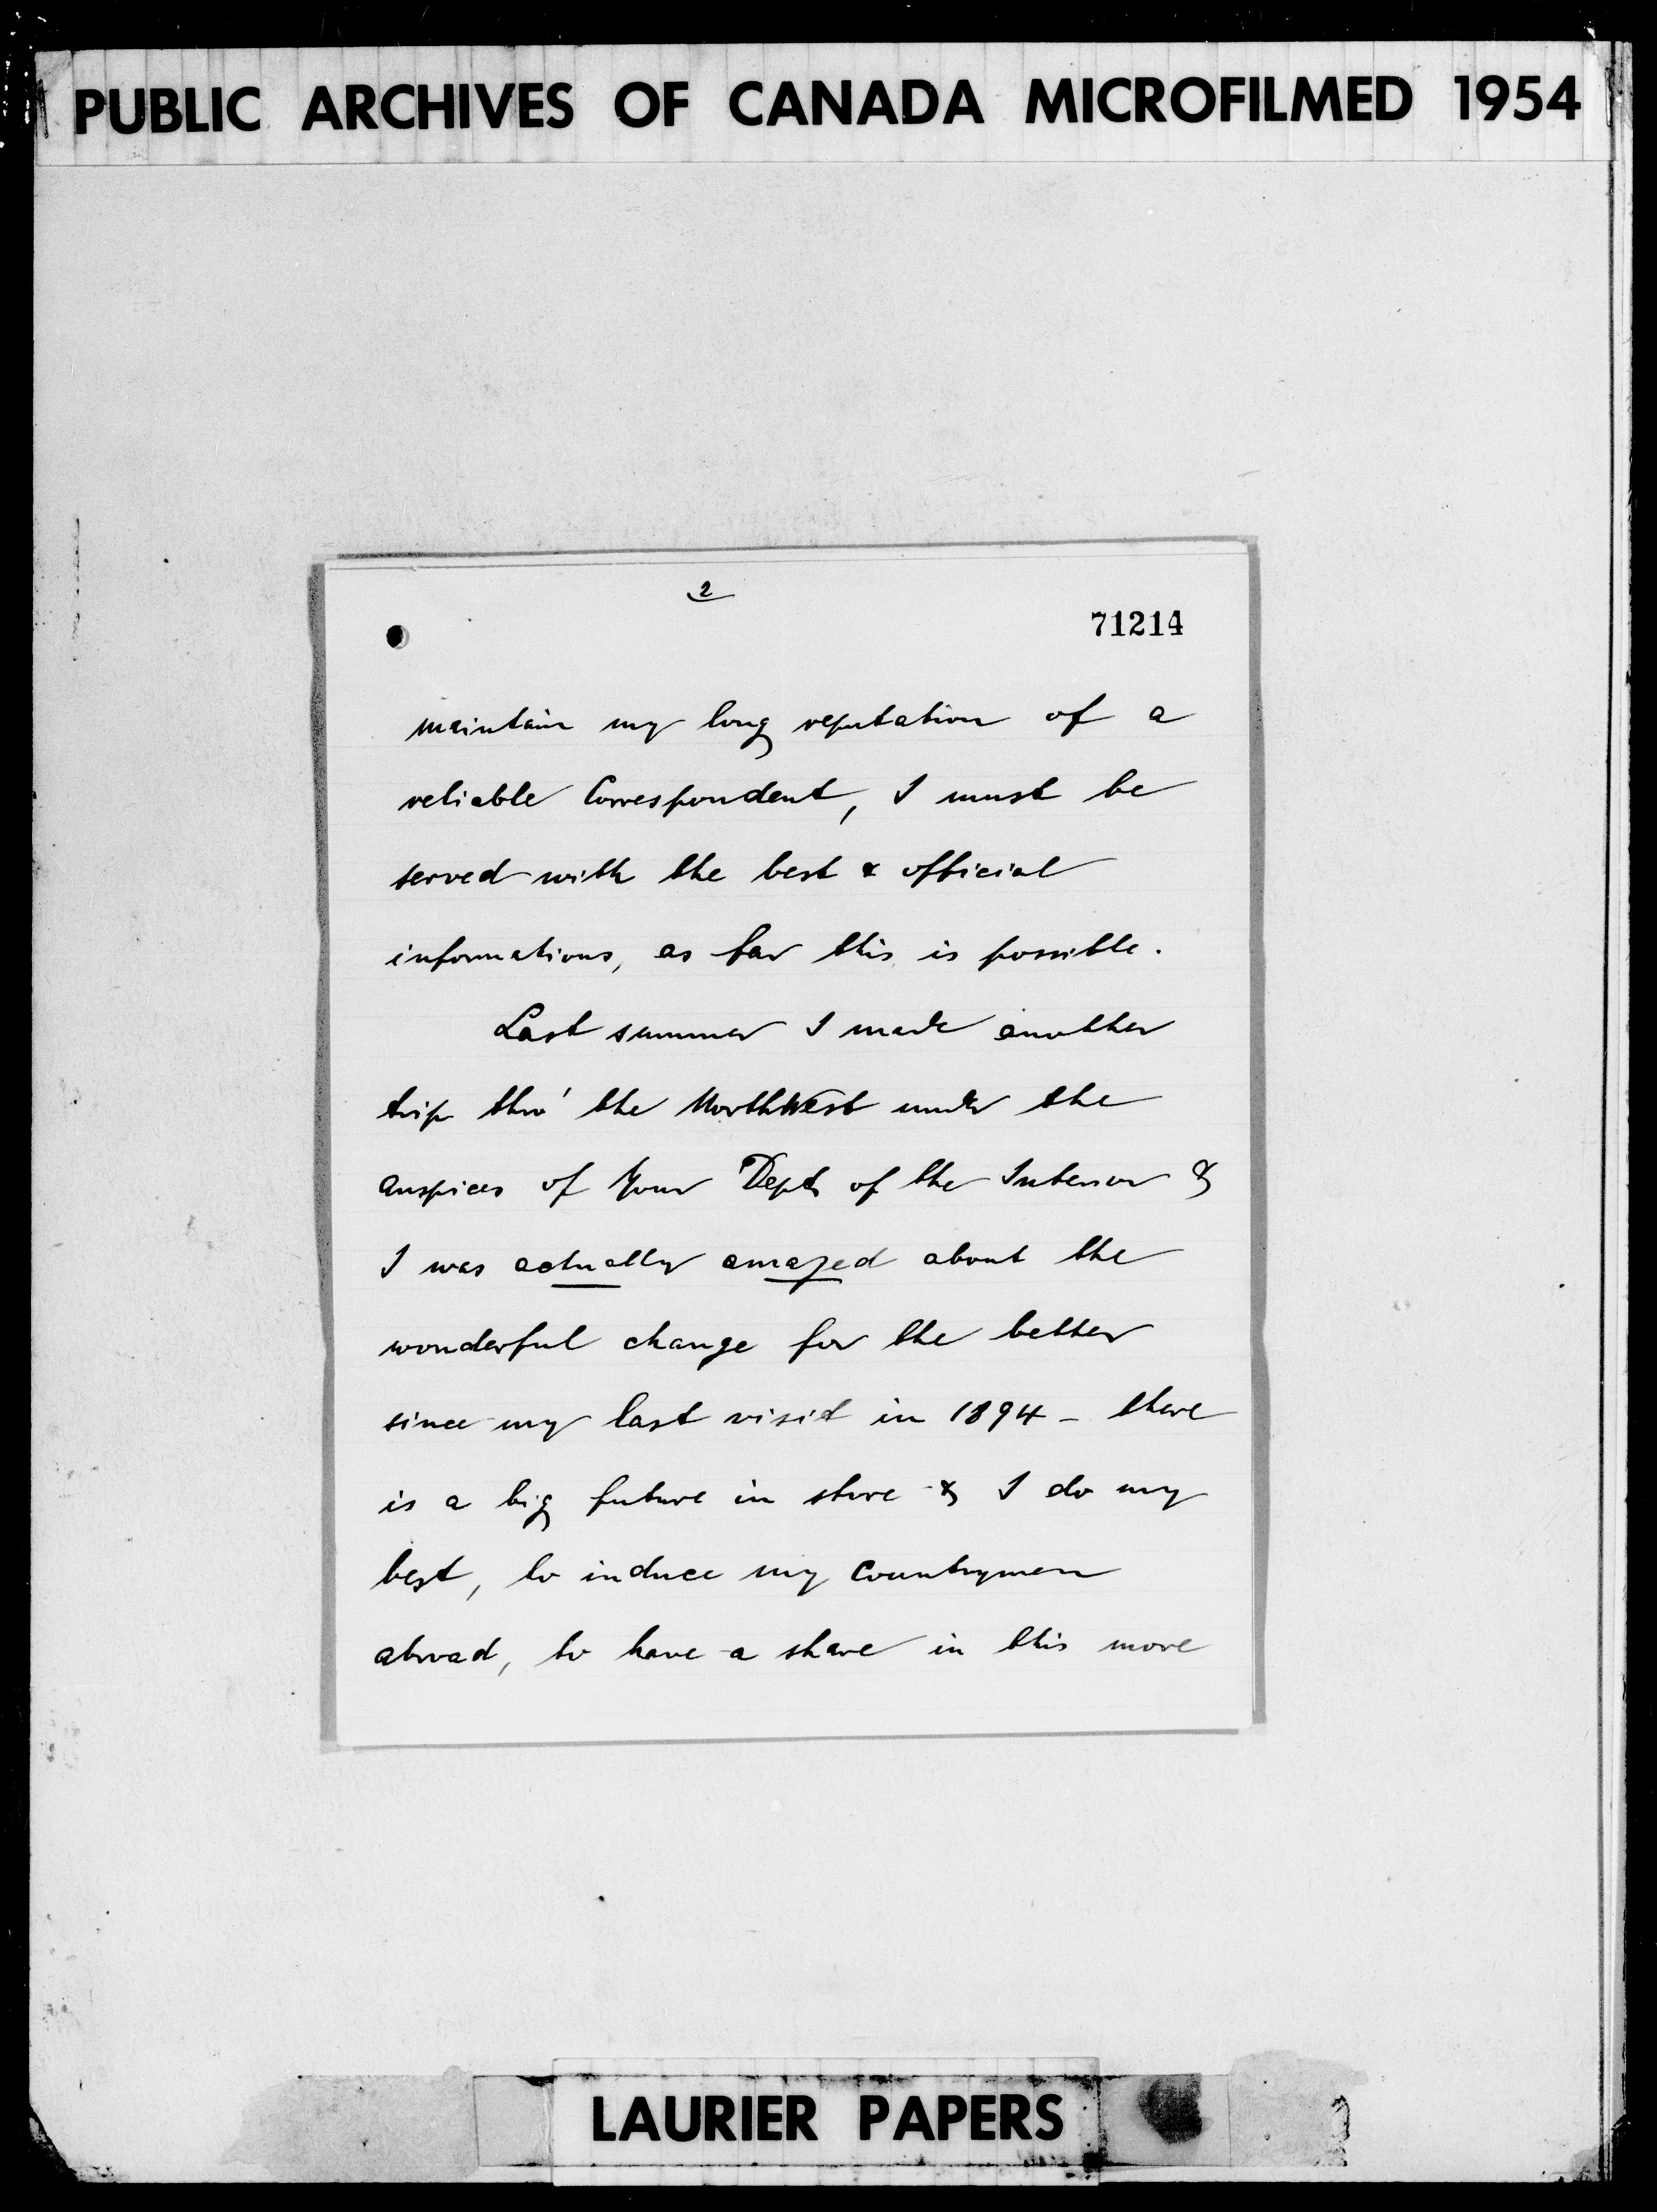 PUBLIC ARCHIVES OF CANADA MICROFILMED 1954
2
71214
maintain my long reputation of a
reliable Correspondent, I must be
served with the best & official
informations, as far this is possible.
Last summer I made another
trip thro' the NorthWest under the
auspices of Your Dept of the Interior &
I was actually amazed about the
wonderful change for the better
since my last visit in 1894 - there
is a big future in store & I do my
best, to induce my Countrymen
abroad, to have a share in this more
LAURIER PAPERS